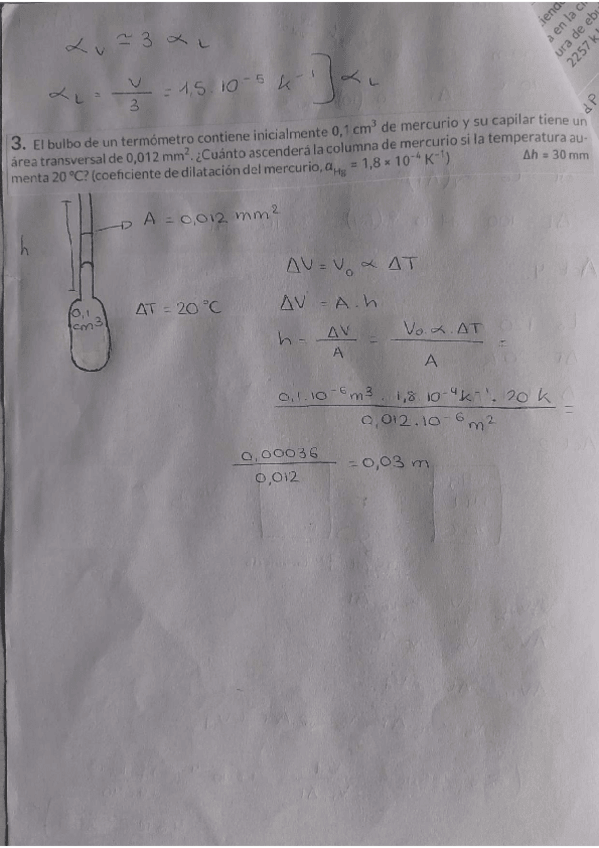 ∝v ≃ 3 ∝L
∝L = V/3 = 1,5 · 10⁻⁵ K⁻¹ ] ∝L
a en la
ura de eb
2257 k
3. El bulbo de un termómetro contiene inicialmente 0,1 cm³ de mercurio y su capilar tiene un
área transversal de 0,012 mm². ¿Cuánto ascenderá la columna de mercurio si la temperatura au-
menta 20 °C? (coeficiente de dilatación del mercurio, αHg = 1,8 × 10⁻⁴ K⁻¹) Δh = 30 mm
A = 0,012 mm²
h
ΔV = V₀ ∝ ΔT
0,1 cm3 ΔT = 20 °C ΔV = A · h
h = ΔV/A = V₀.∝.ΔT/A =
0,1.10⁻⁶m³ . 1,8 10⁻⁴k⁻¹. 20 k / 0,012.10⁻⁶m² =
0,00036/0,012 = 0,03 m